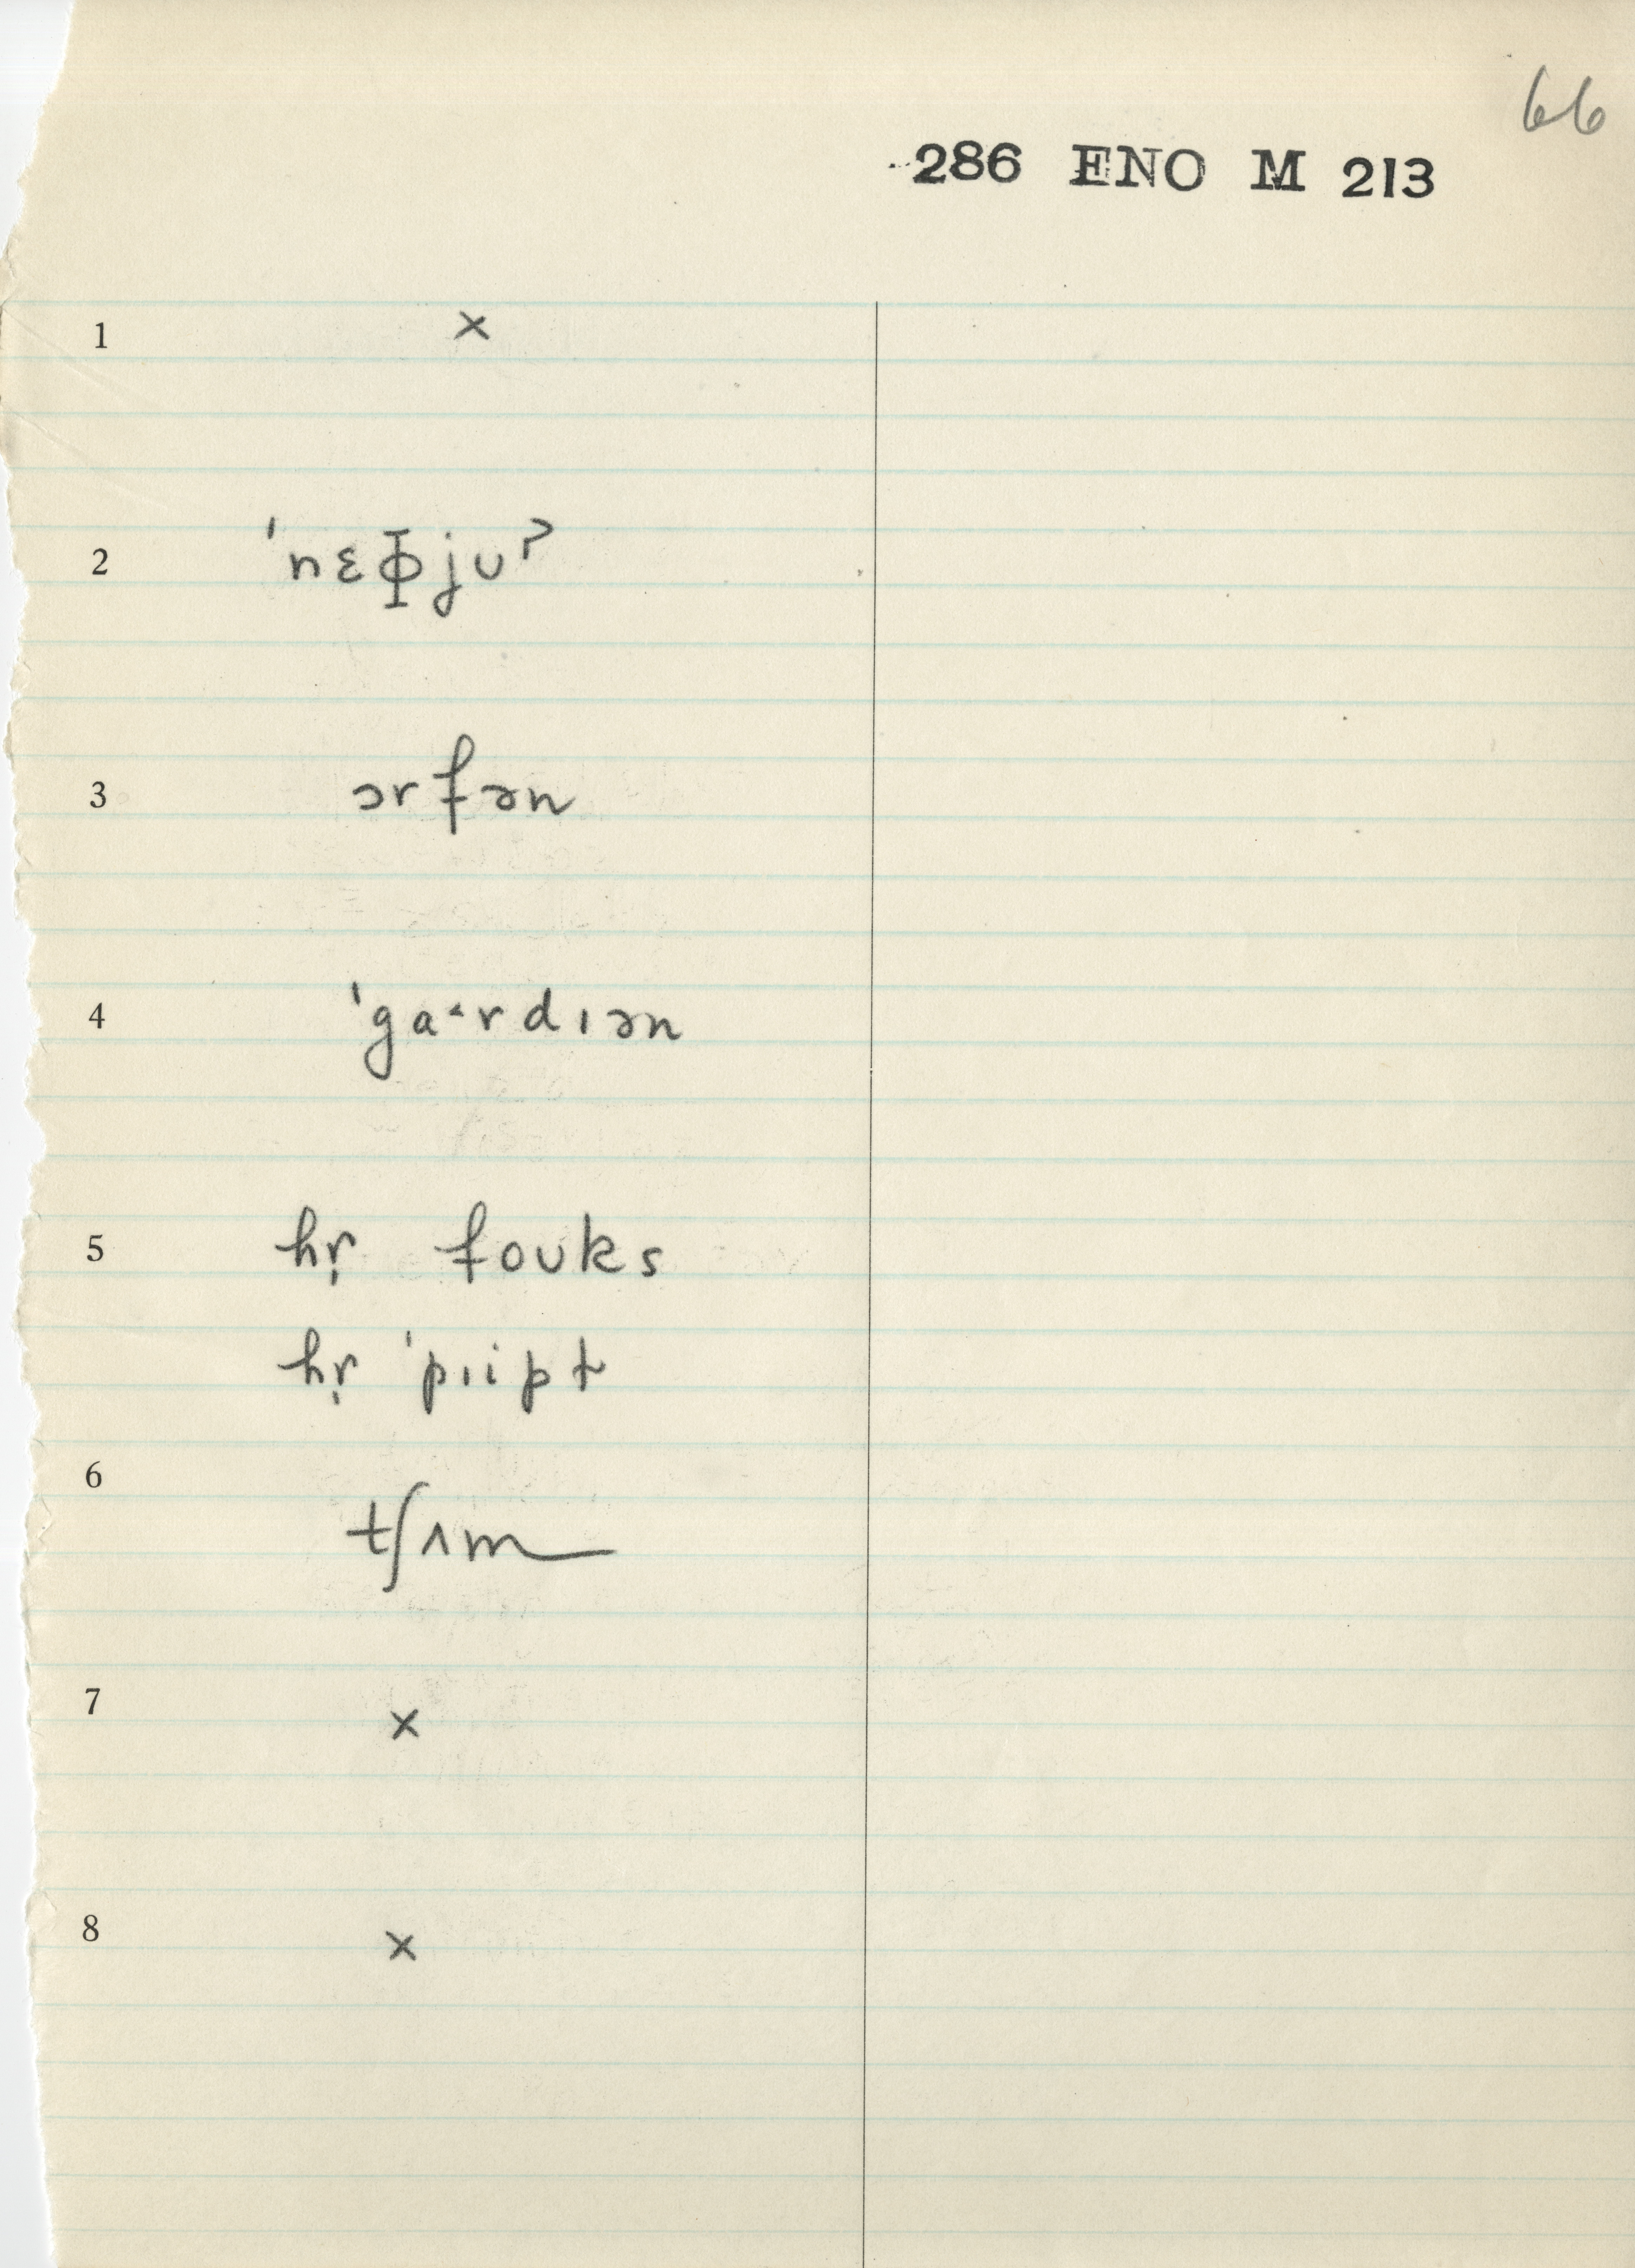 66
286 ENO M 213
1 ×
2 ˈnɛɸjuˀ
3 ɔrfən
4 ˈgaˑrdɪən
5 hr̩ foʊks
hr̩ ˈpɪipt
6 tʃʌm
7 ×
8 ×